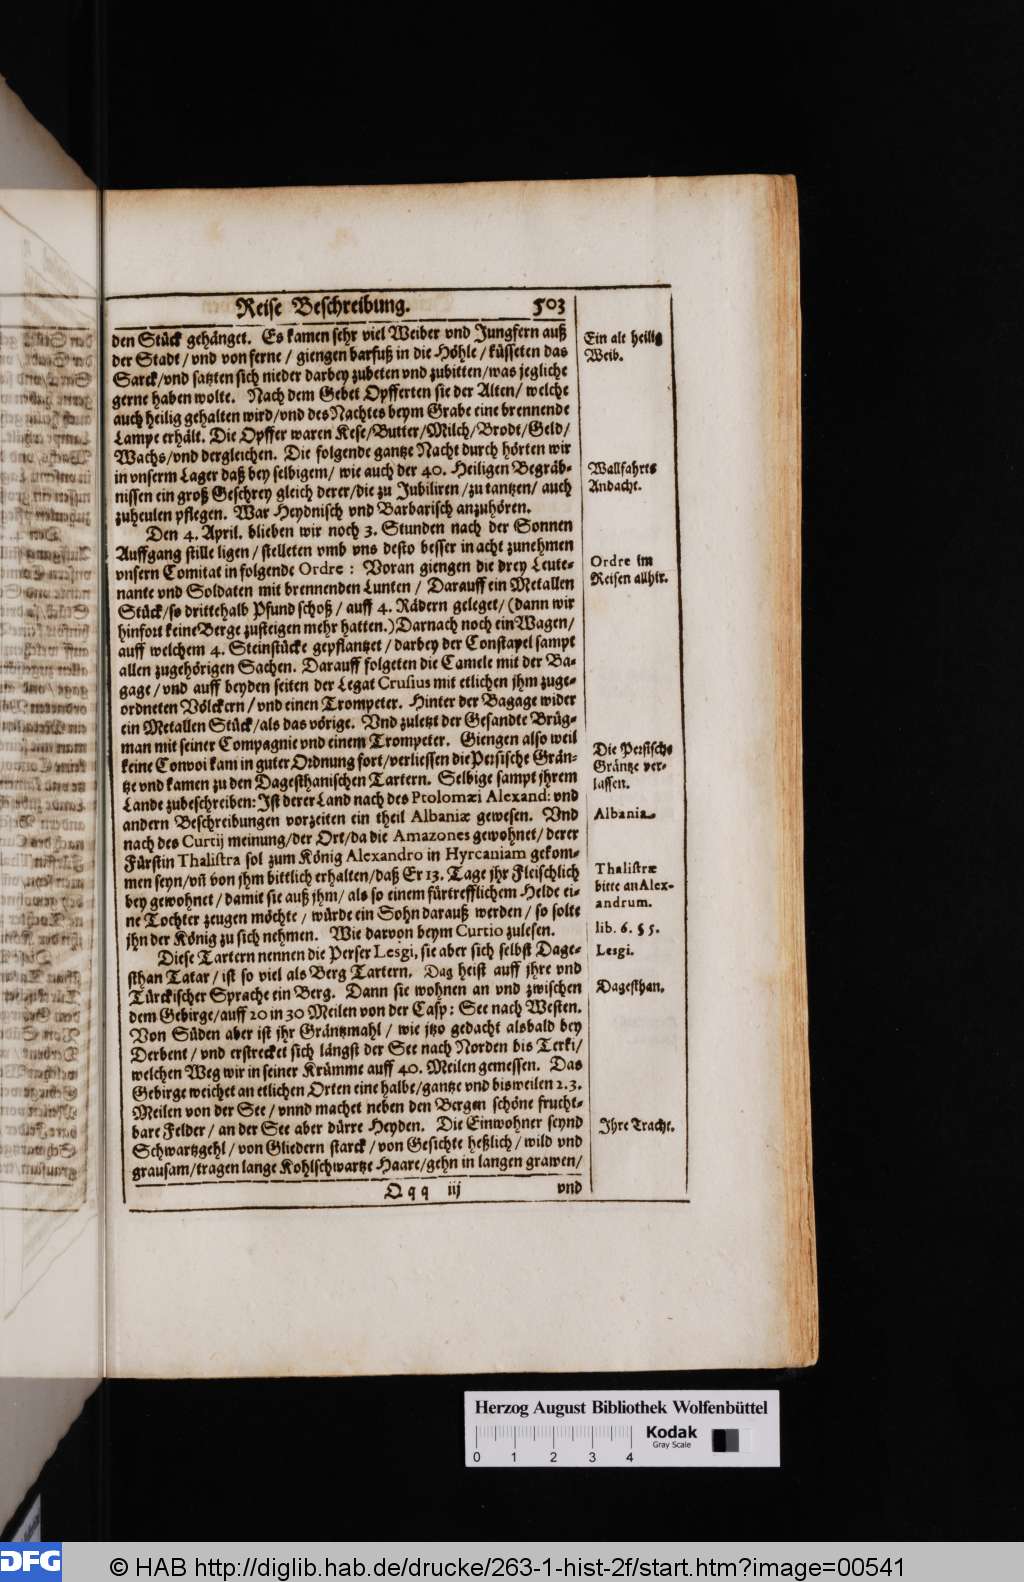 Reise Beschreibung. 503
den Stück gehänget. Es kamen sehr viel Weiber vnd Jungfern auß
der Stadt / vnd von ferne / giengen barfuß in die Höhle / küsseten das
Sarck/vnd satzten sich nieder darbey zubeten vnd zubitten/was jegliche
gerne haben wolte. Nach dem Gebet Opfferten sie der Alten/ welche
auch heilig gehalten wird/vnd des Nachtes beym Grabe eine brennende
Lampe erhält. Die Opffer waren Kese/Butter/Milch/Brodt/Geld/
Wachs/vnd dergleichen. Die folgende gantze Nacht durch hörten wir
in vnserm Lager daß bey selbigem/ wie auch der 40. Heiligen Begräb-
nissen ein groß Geschrey gleich derer/die zu Jubiliren/zu tantzen/ auch
zuheulen pflegen. War Heydnisch vnd Barbarisch anzuhören.
Den 4. April. blieben wir noch 3. Stunden nach der Sonnen
Auffgang stille ligen/ stelleten vmb vns desto besser in acht zunehmen
vnsern Comitat in folgende Ordre : Voran giengen die drey Leute-
nante vnd Soldaten mit brennenden Lunten / Darauff ein Metallen
Stück/so drittehalb Pfund schoß / auff 4. Rädern geleget/ (dann wir
hinfort keine Berge zusteigen mehr hatten.) Darnach noch ein Wagen/
auff welchem 4. Steinstücke gepflantzet / darbey der Constapel sampt
allen zugehörigen Sachen. Darauff folgeten die Camele mit der Ba-
gage / vnd auff beyden seiten der Legat Crusius mit etlichen jhm zuge-
ordneten Völckern / vnd einen Trompeter. Hinter der Bagage wider
ein Metallen Stück/als das vörige. Vnd zuletzt der Gesandte Brüg-
man mit seiner Compagnie vnd einem Trompeter. Giengen also weil
keine Convoi kam in guter Ordnung fort/verliessen die Persische Grän-
tze vnd kamen zu den Dagesthanischen Tartern. Selbige sampt jhrem
Lande zubeschreiben: Ist derer Land nach des Ptolomæi Alexand: vnd
andern Beschreibungen vorzeiten ein theil Albaniæ gewesen. Vnd
nach des Curtij meinung/der Ort/da die Amazones gewohnet/ derer
Fürstin Thalistra sol zum König Alexandro in Hyrcaniam gekom-
men seyn/vñ von jhm bittlich erhalten/daß Er 13. Tage jhr Fleischlich
bey gewohnet / damit sie auß jhm/ als so einem fürtrefflichem Helde ei-
ne Tochter zeugen möchte / würde ein Sohn darauß werden / so solte
jhn der König zu sich nehmen. Wie darvon beym Curtio zulesen.
Diese Tartern nennen die Perser Lesgi, sie aber sich selbst Dage-
sthan Tatar / ist so viel als Berg Tartern. Dag heist auff jhre vnd
Türckischer Sprache ein Berg. Dann sie wohnen an vnd zwischen
dem Gebirge/auff 20 in 30 Meilen von der Casp: See nach Westen.
Von Süden aber ist jhr Gräntzmahl / wie jtzo gedacht alsbald bey
Derbent / vnd erstrecket sich längst der See nach Norden bis Terki/
welchen Weg wir in seiner Krümme auff 40. Meilen gemessen. Das
Gebirge weichet an etlichen Orten eine halbe/gantze vnd bisweilen 2.3.
Meilen von der See / vnnd machet neben den Bergen schöne frucht-
bare Felder / an der See aber dürre Heyden. Die Einwohner seynd
Schwartzgehl / von Gliedern starck / von Gesichte heßlich / wild vnd
grausam/tragen lange Kohlschwartze Haare/gehn in langen grawen/
Q q q iij vnd
Ein alt heilig
Weib.
Wallfahrts
Andacht.
Ordre im
Reisen allhir.
Die Persische
Gräntze ver-
lassen.
Albania.
Thalistræ
bitte an Alex-
andrum.
lib. 6. § 5.
Lesgi.
Dagesthan.
Ihre Tracht.
Herzog August Bibliothek Wolfenbüttel
Kodak
Gray Scale
0 1 2 3 4
DFG
© HAB http://diglib.hab.de/drucke/263-1-hist-2f/start.htm?image=00541